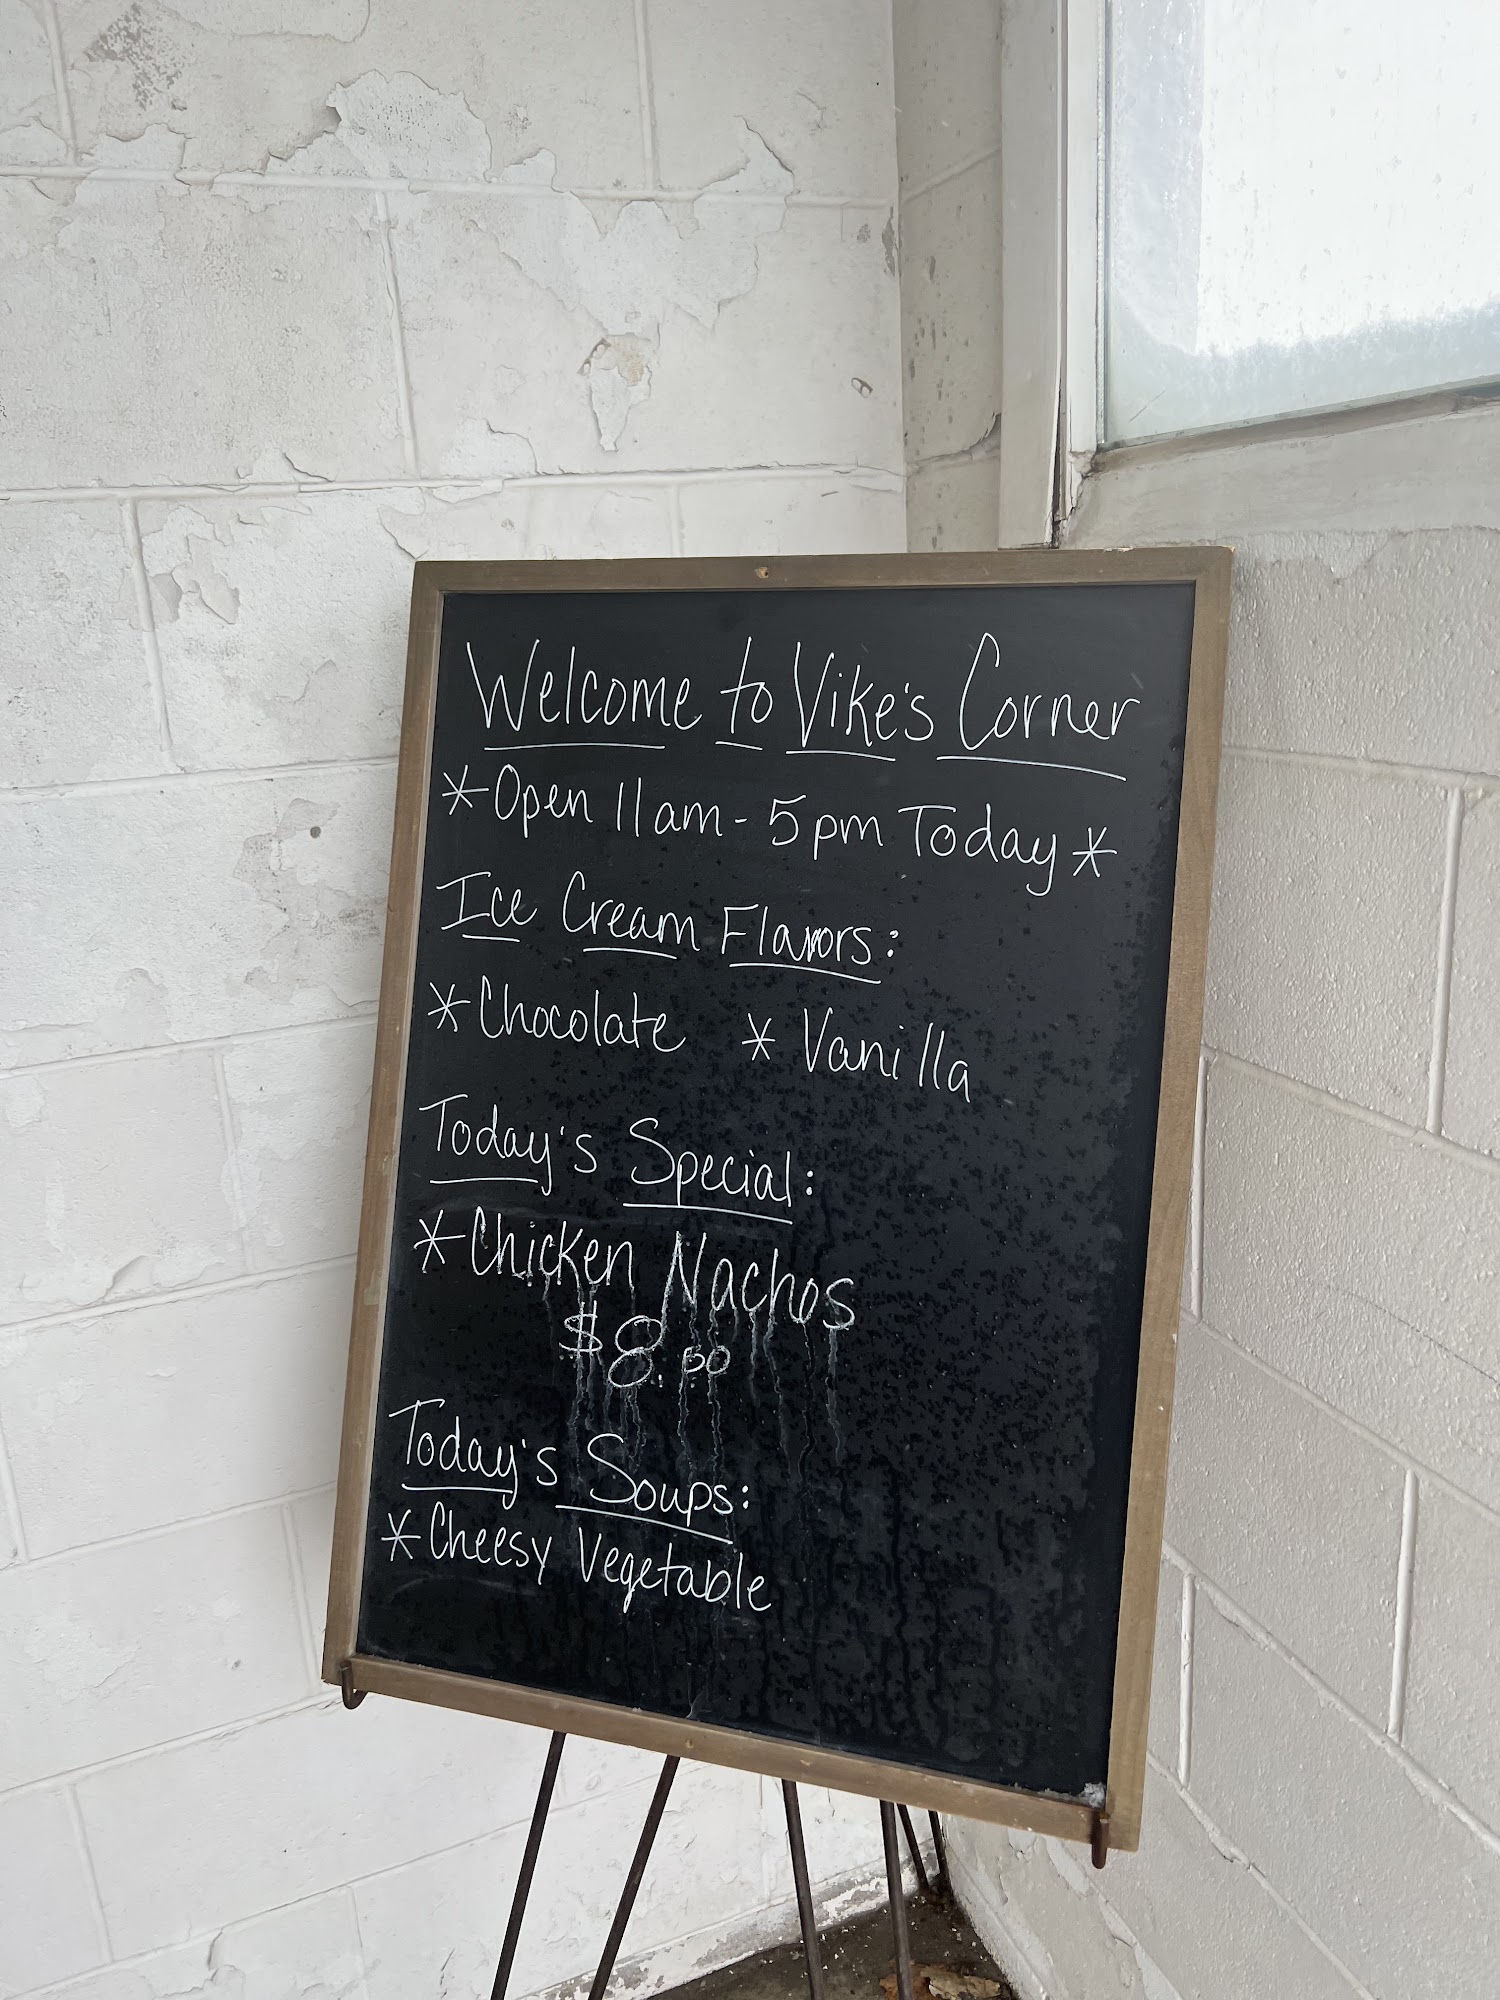 Welcome to Vike's Corner
*Open 11am - 5pm Today*
Ice Cream Flavors:
*Chocolate * Vanilla
Today's Special:
*Chicken Nachos
$8.50
Today's Soups:
*Cheesy Vegetable